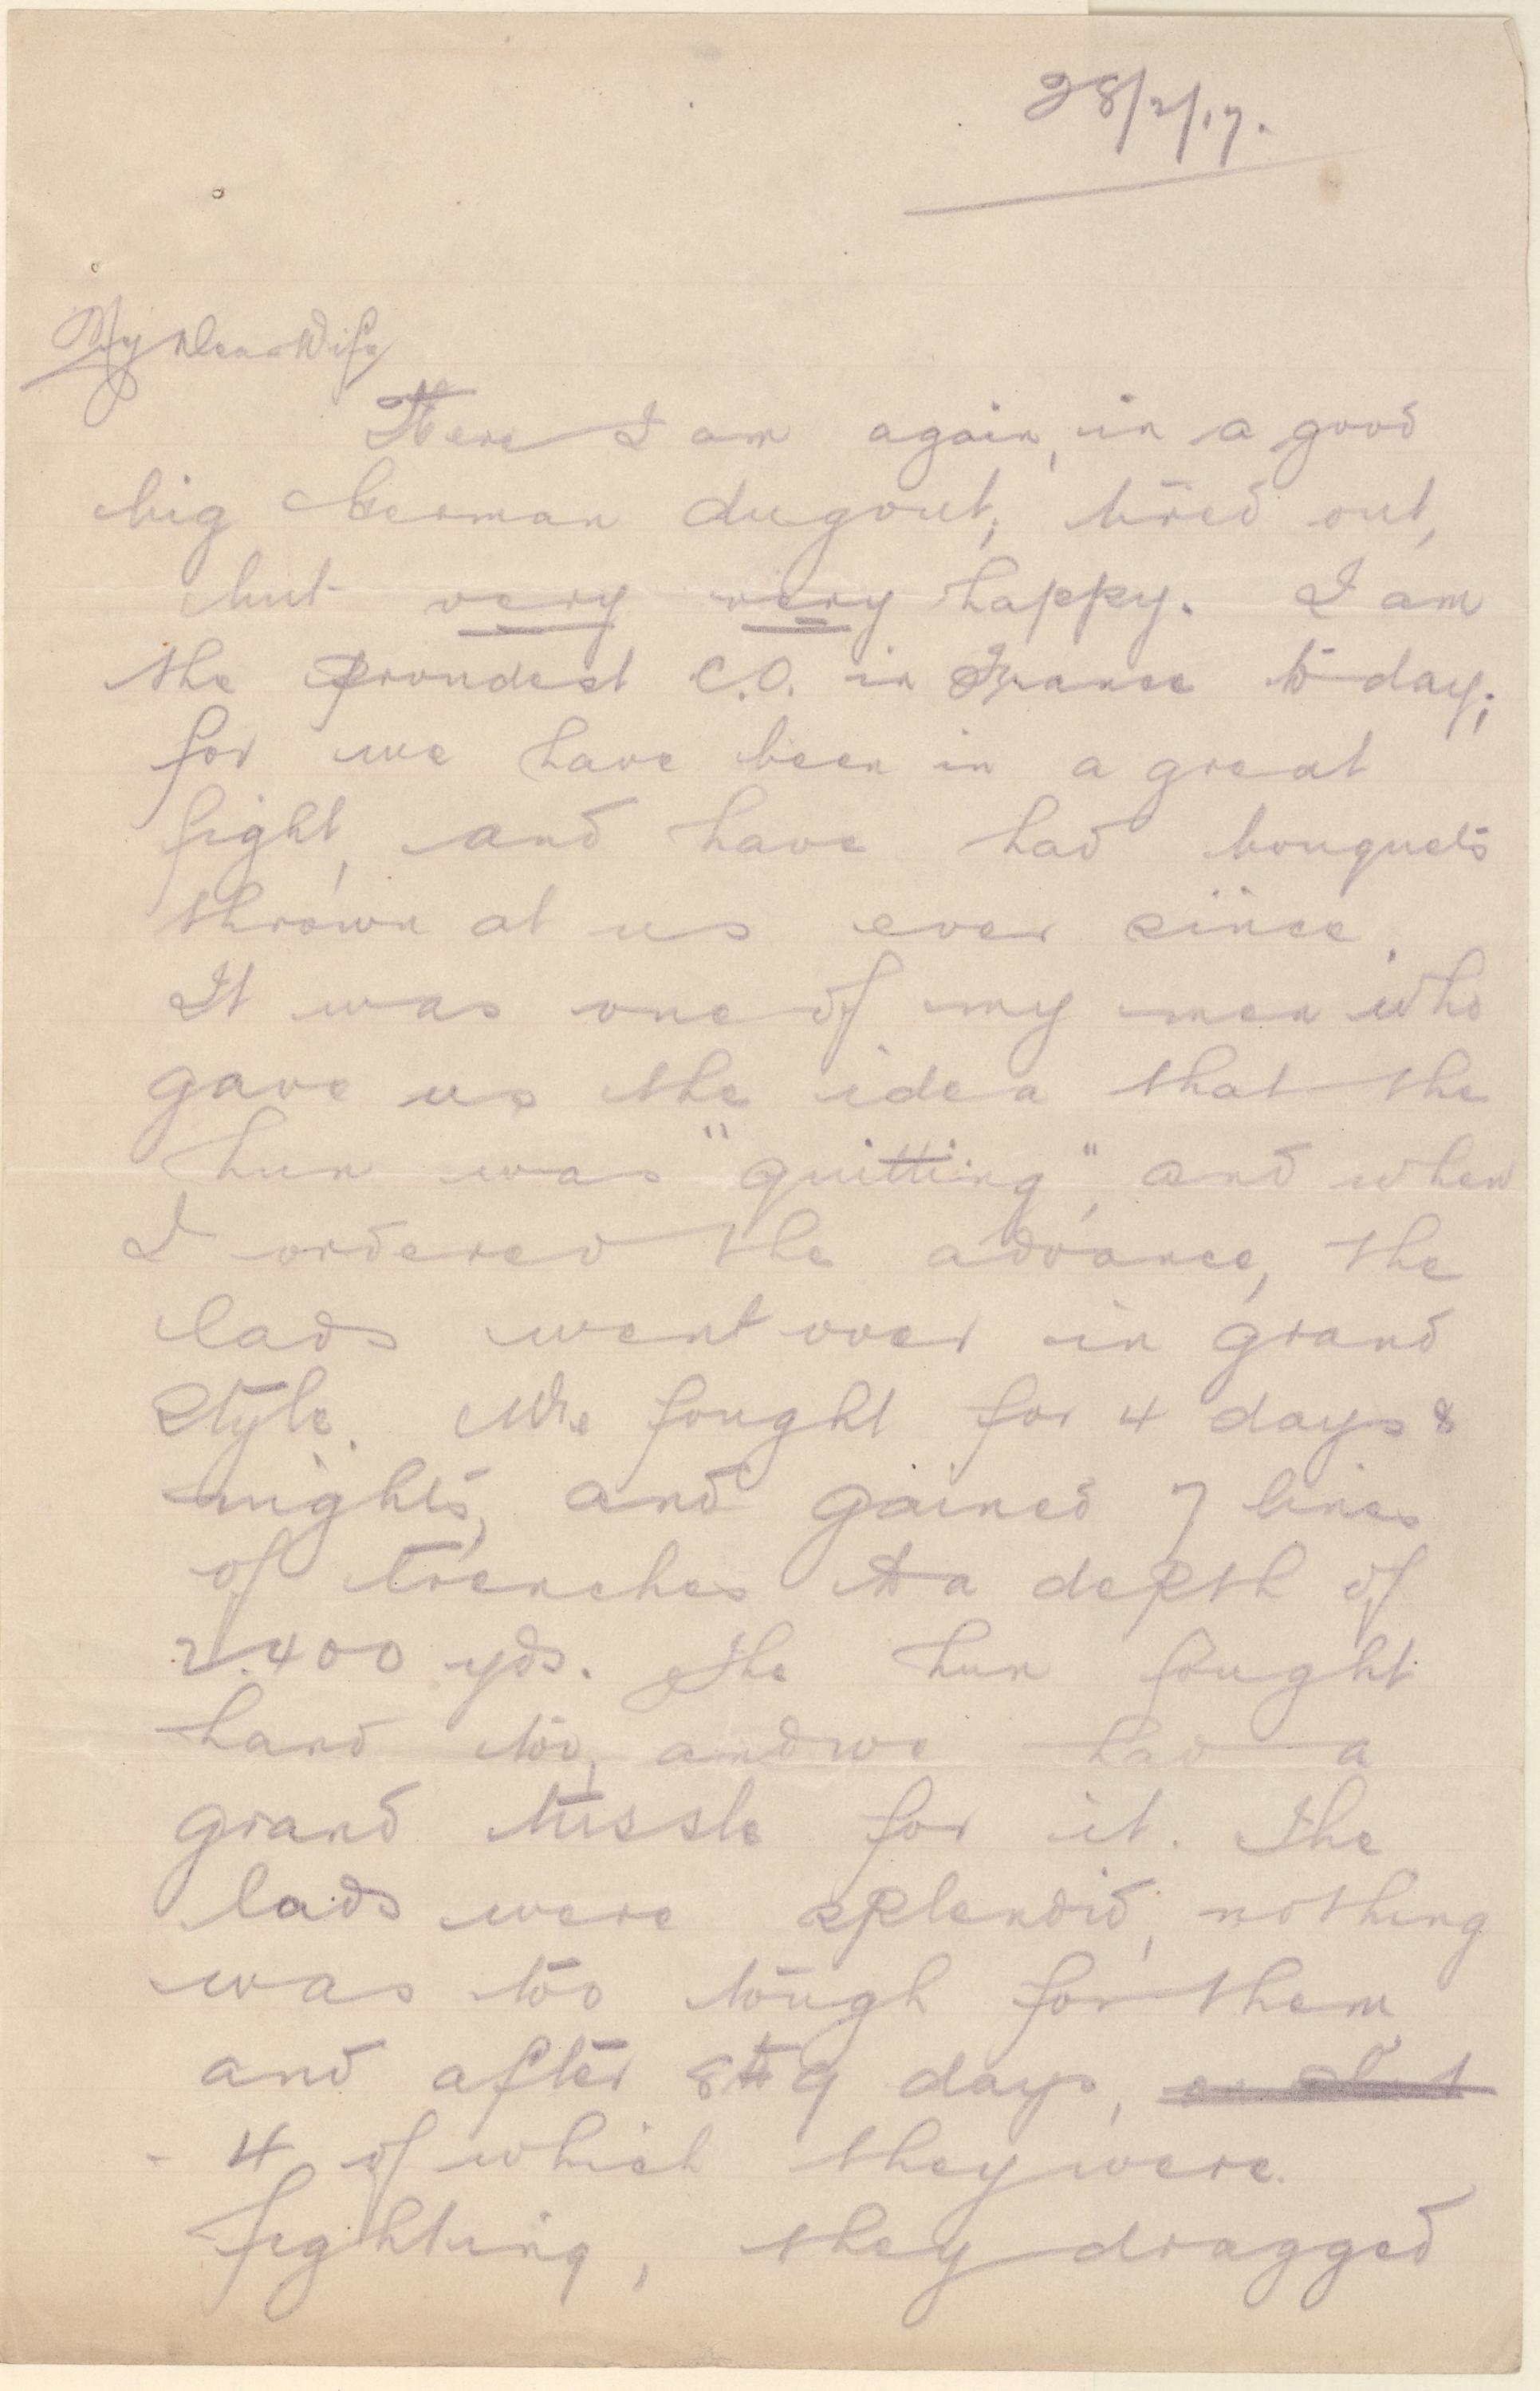 28/2/17.
My Dear Wife
Here I am again, in a good
big German dugout, tired out,
but very very happy. I am
the proudest C.O. in France to-day;
for we have been in a great
fight, and have had bouquets
thrown at us ever since.
It was one of my men who
gave us the idea that the
hun was "quitting", and when
I ordered the advance, the
lads went over in grand
style. We fought for 4 days &
nights, and gained 7 lines
of trenches to a depth of
2.400 yds. The hun fought
hard too, and we had a
grand tussle for it. The
lads were splendid, nothing
was too tough for them
and after 8 to 9 days,
4 of which they were
fighting, they dragged